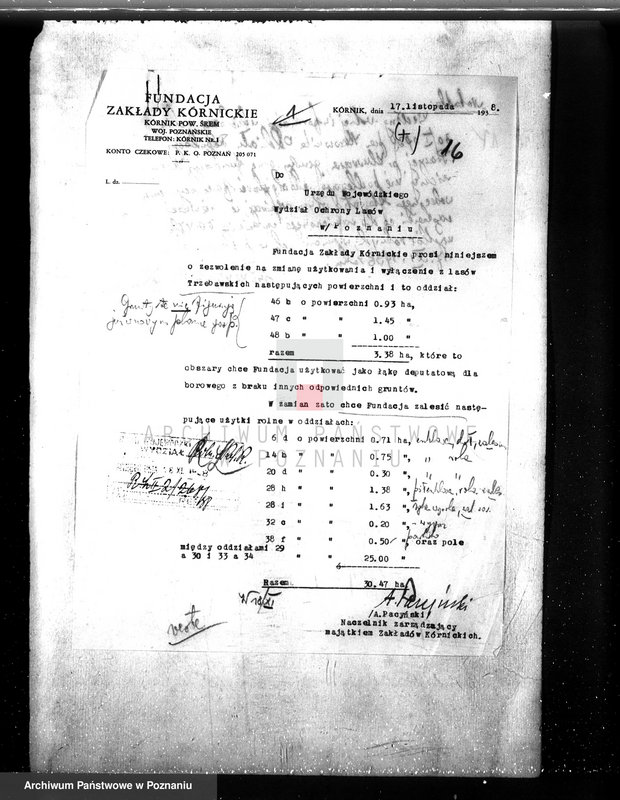 FUNDACJA
ZAKŁADY KÓRNICKIE
KÓRNIK POW. ŚREM
WOJ. POZNAŃSKIE
TELEFON: KÓRNIK NR. 1
KONTO CZEKOWE: P. K. O. POZNAŃ 205 071
L. dz.
KÓRNIK, dnia 17.listopada 1938.
16
Do
Urzędu Wojewódzkiego
Wydział Ochrony Lasów
w/Poznaniu
Fundacja Zakłady Kórnickie prosi niniejszem
o zezwolenie na zmianę użytkowania i wyłączenie z lasów
Trzebawskich następujących powierzchni i to oddział:
46 b o powierzchni 0.93 ha,
47 c " " 1.45 ",
48 b " " 1.00 "
razem 3.38 ha, które to
obszary chce Fundacja użytkować jako łąkę deputatową dla
borowego z braku innych odpowiednich gruntów.
W zamian zato chce Fundacja zalesić nastę-
pujące użytki rolne w oddziałach:
6 d o powierzchni 0.71 ha,
14 b " " 0.75 ", rola
20 d " " 0.30 ",
28 h " " 1.38 ",
28 i " " 1.63 ",
32 c " " 0.20 ",
38 f " " 0.50 ", oraz pole
między oddziałami 29
a 30 i 33 a 34 " " 25.00 "
Razem 30.47 ha
/A.Pacyński/
Naczelnik zarządzający
majątkiem Zakładów Kórnickich.
ARCHIWUM PAŃSTWOWE
W POZNANIU
Archiwum Państwowe w Poznaniu